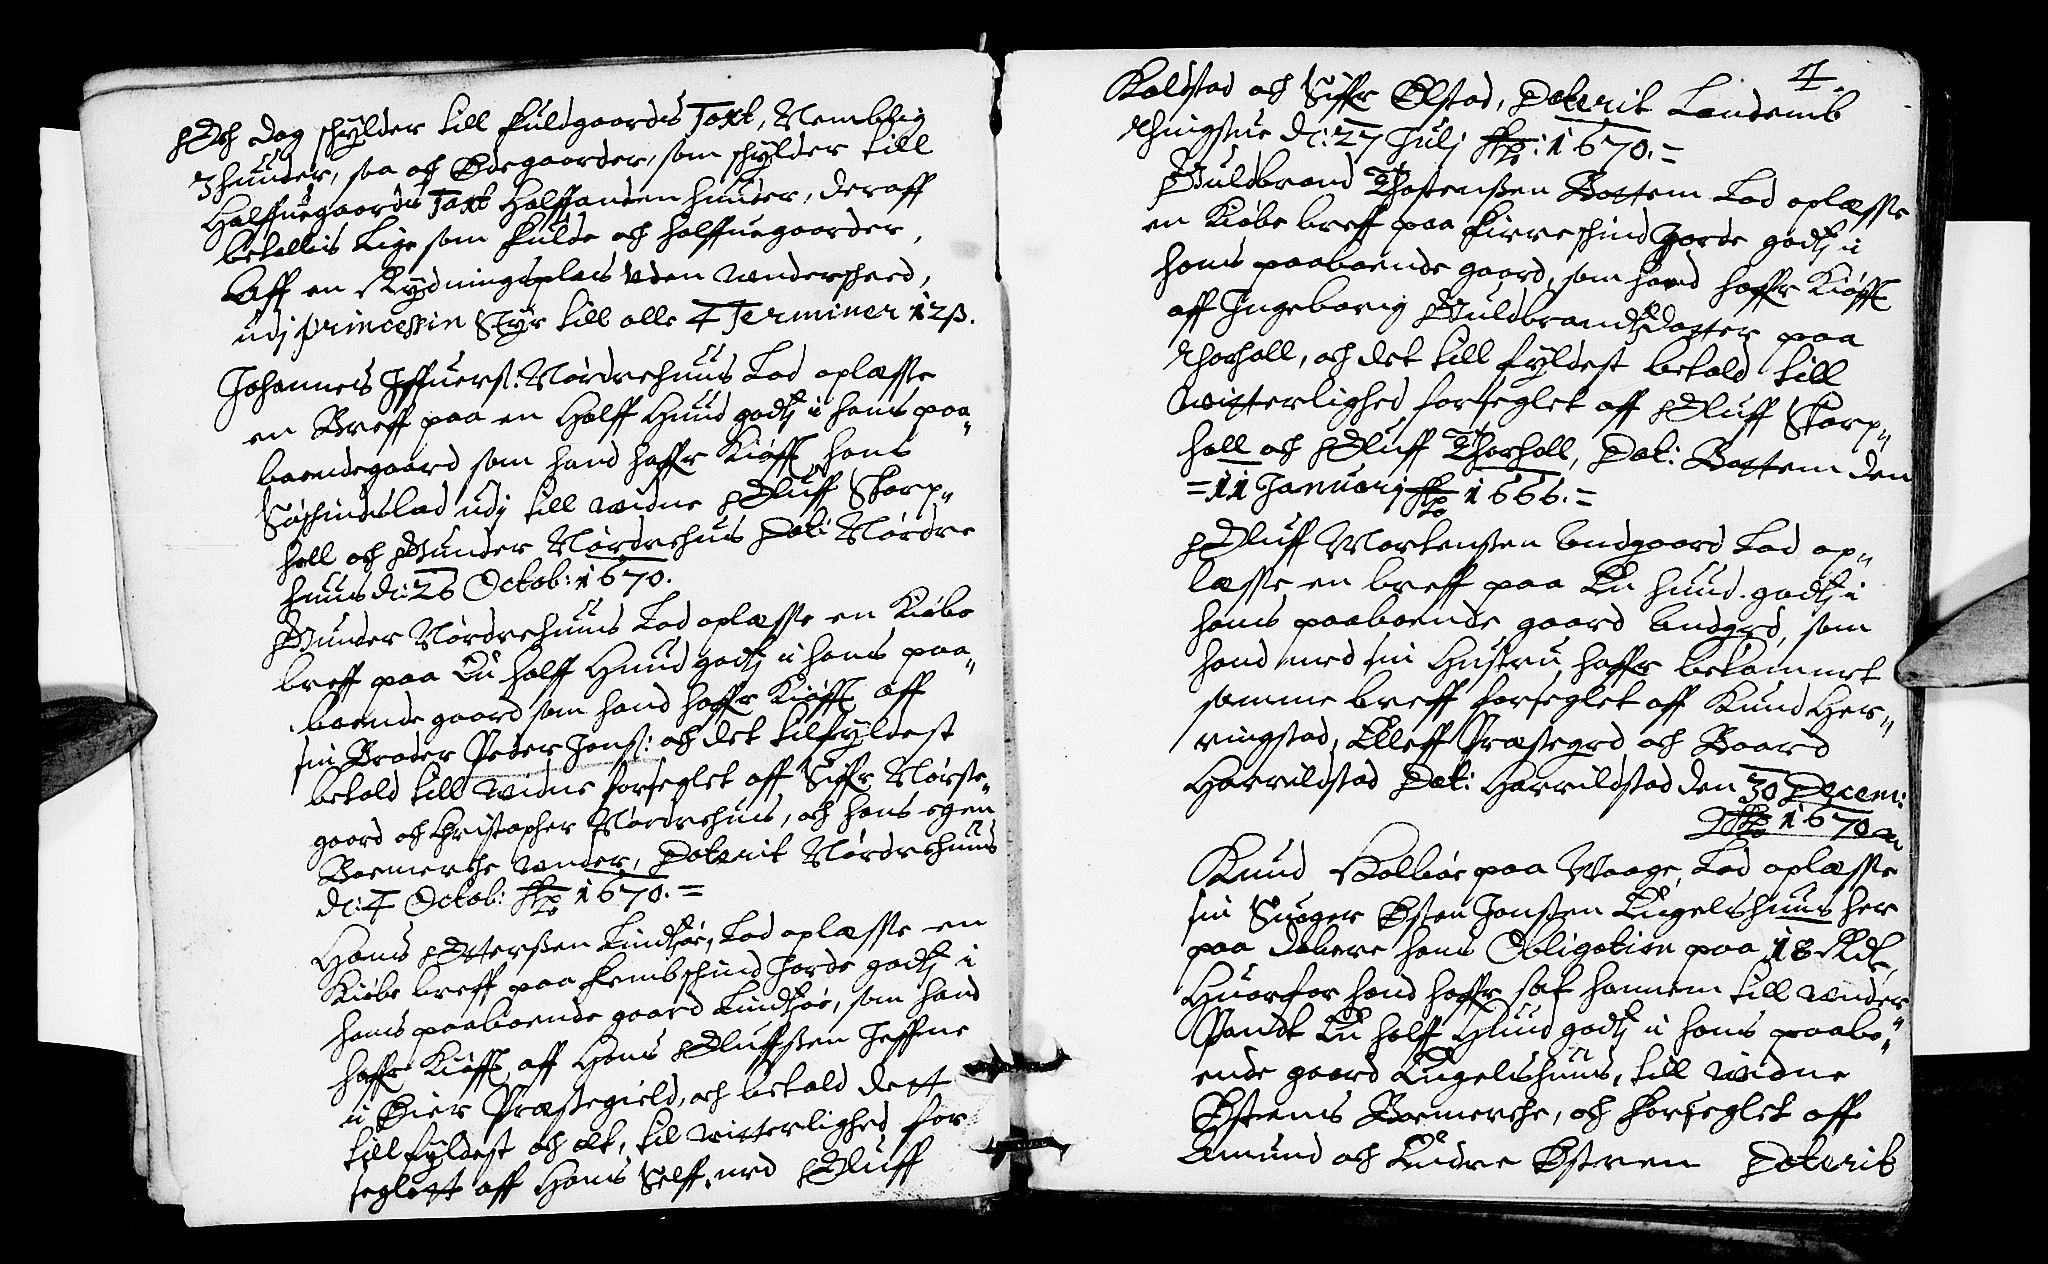 Och dog schylder till fuldgaards Taxt, Nemblig
3 hunder, saa och Ødegaarder, som schylder till
Halffuegaards Taxt Halffanden hunder, deraff
betallis Lige som fulde och halffuegaarder,
Aff en Rydningsplads uden underscheed,
udj princessin Styr till alle 4 Terminer 12 ß.
Johannes Iffuerß: Nordrehuus Lod oplæsse
en Breff paa en Halff Hund godtz i hans paa„
boendegaard som hand haffr Kiøfft hans
Søschindelod udj till widne Oluff Skarp„
holl och Gunder Nordrehuus Dat: Nordre
huus d: 26 Octob: 1670.
Gunder Nordrehuus Lod oplæsse en Kiøbe
breff paa En halff Hund godtz i hans paa„
boende gaard som hand haffr Kiøfft aff
sin Broder Peder Jonß: och det til fyldest
betald till widne forseglet aff Siffr Nørste„
gaard och Christopher Nordrehuus, och hans egen
Boemerche under, Daterit Nordrehuus
d: 4 Octob: Ao 1670. =
Hans Otterßen Lindsøe, Lod oplæsse en
Kiøbe breff paa fembschind Jorde godtz i
hans paaboende gaard Lindsøe, som hand
haffr Kiøfft aff Hans Oluffßen Jeffne
i Øier Præstegield, och betald dett
till fyldest och alt, til witterlighed for
seglett aff Hans Self, med Oluff
4.
Kaldstad och Siffr Ølstad, Daterit Landemb
Thingstue d: 27 Julj Ao: 1670. =
Guldbrand Thostenßen Bottem Lod oplæsse
en Kiøbe breff paa firreschind Jorde godtz i
hans paaboende gaard, som hand haffr Kiøfft
aff Ingeborig Guldbrandtzdotter paa
Thorholl, och det till fyldest betald till
witterlighed forseglet aff Oluff Skarp„
holl och Oluff Thorholl, Dat: Bottem den
= 11 Januarj Ao 1666. =
Oluff Mortenßen Andgaard Lod op„
læsse en breff paa En hund. godtz i
hans paaboende gaard Andgrd, som
hand med sin Hustru haffr bekommet
samme breff forseglet aff Knud Her„
ringstad, Elleff Præstegrd och Baard
Harrildstad Dat: Harrildstad den 30 Decem:
Ao 1670
Knud Holbøe paa Waage, Lod oplæsse
sin Suoger Østen Jonßen Engelshuus her
paa Dobere hans Obligation paa 18 Rdl,
Huorfor hand haffr sat hannem till under
Pandt En halff Hund godtz i hans paabo„
ende gaard Engelshuus, till widne
Østens Boemerche, och forseglet aff
Amund och Endre Østreen Daterit